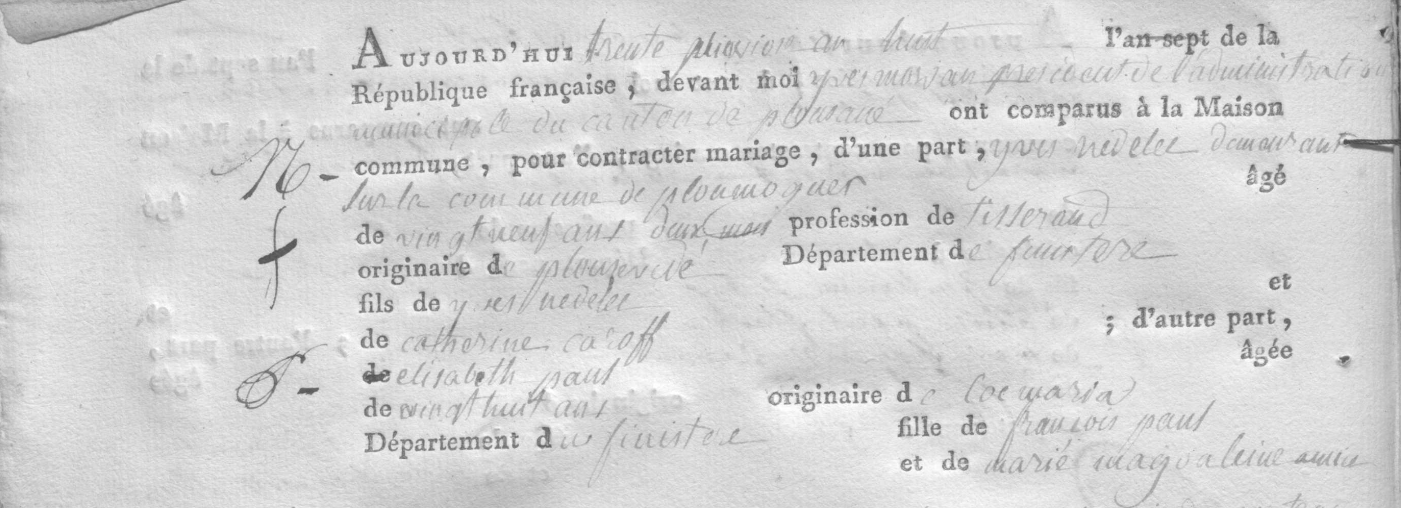 AUJOURD'HUI trente pluviose an huit l'an sept de la
République française ; devant moi yves mosvan president de l'administration
municipale du canton de plousané ont comparus à la Maison
commune , pour contracter mariage , d'une part , yves nedelec demeurant
sur la commune de ploumoguer âgé
de vingt neuf ans deux mois profession de tisserand
originaire de plouzevede Département de finistere
fils de yves nedelec et
de catherine caroff ; d'autre part ,
de elisabeth paul âgée
de vingt huit ans originaire de locmaria
Département du finistere fille de francois paul
et de marie magdaleine